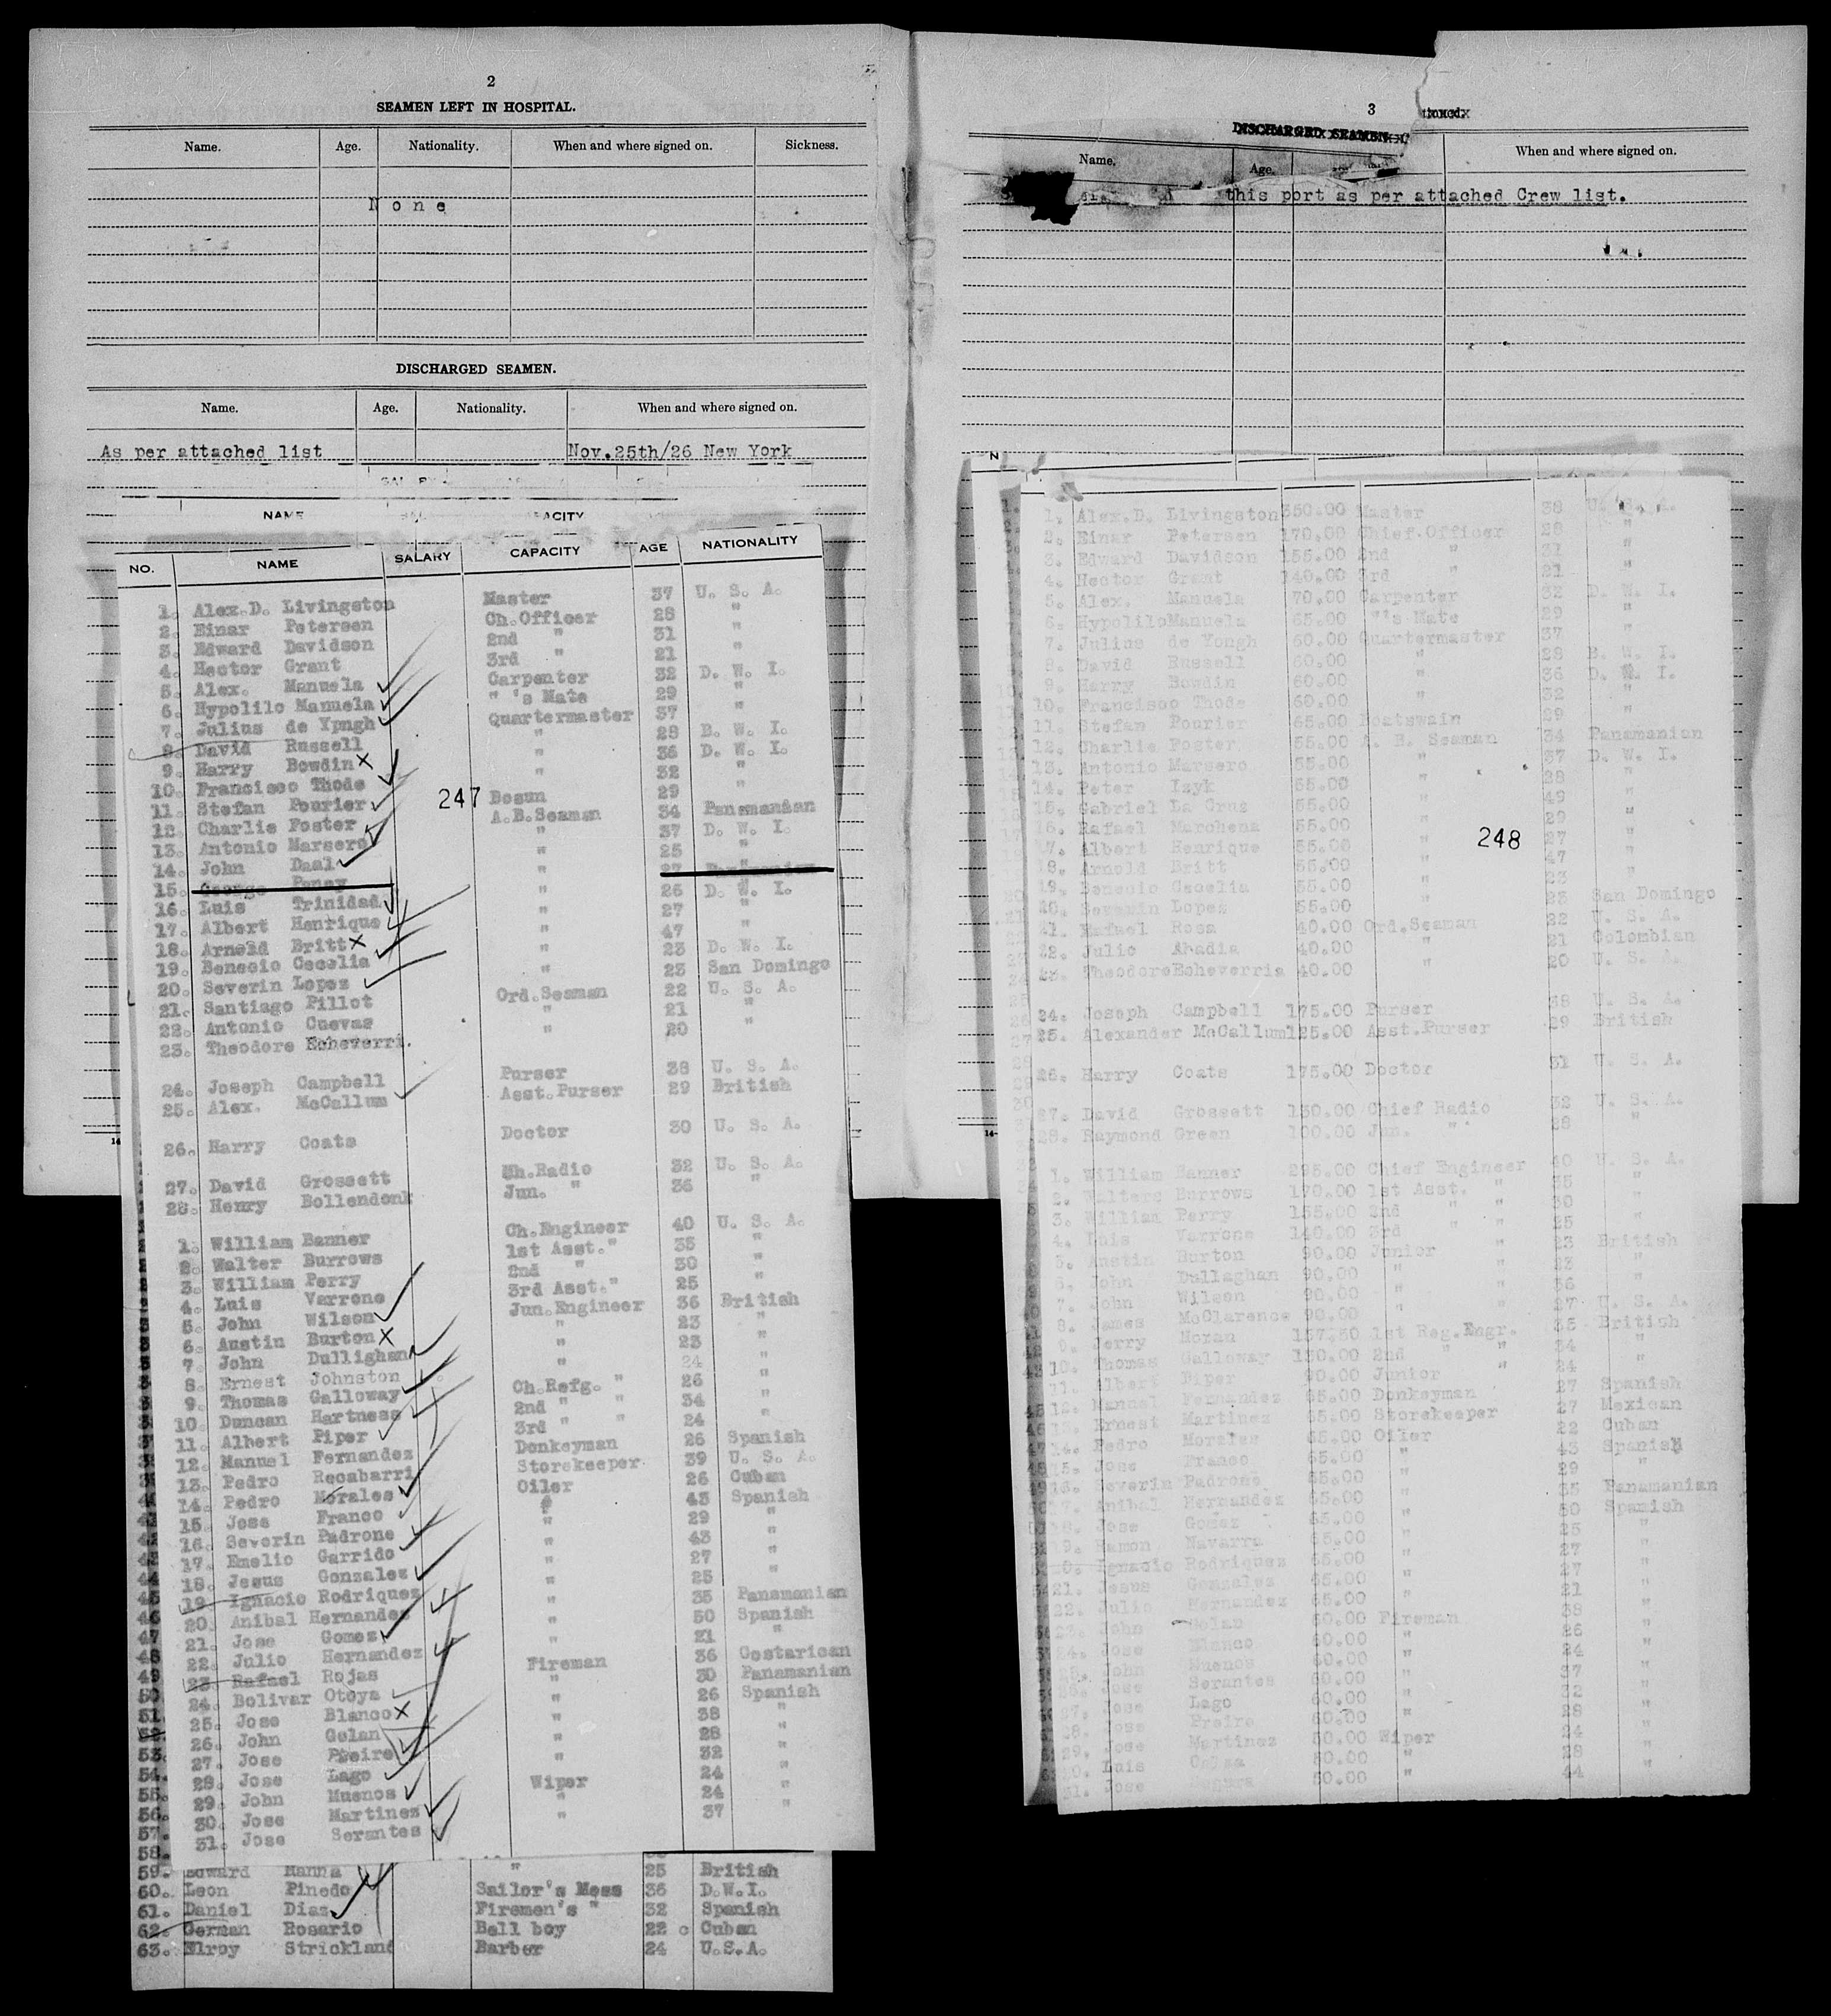 2
SEAMEN LEFT IN HOSPITAL.
Name. Age. Nationality. When and where signed on. Sickness.
None
DISCHARGED SEAMEN.
Name. Age. Nationality. When and where signed on.
As per attached list Nov.25th/26 New York
NAME
NO. NAME SALARY CAPACITY AGE NATIONALITY
1. Alex.D. Livingston Master 37 U. S. A.
2. Einar Petersen Ch.Officer 28 "
3. Edward Davidson 2nd " 31 "
4. Hector Grant 3rd " 21 "
5. Alex. Manuela Carpenter 32 D. W. I.
6. Hypolilo Manuela " 's Mate 29 "
7. Julius de Yongh Quartermaster 37 "
8. David Russell " 28 B. W. I.
9. Harry Bowdin " 36 D. W. I.
10. Francisco Thode " 32 "
11. Stefan Pourier Bosun 29 "
12. Charlie Foster A.B.Seaman 34 Panamanian
13. Antonio Marsero " 37 D. W. I.
14. John Daal " 25 "
15. George " 27
16. Luis Trinidad " 26 D. W. I.
17. Albert Henrique " 27 "
18. Arnold Britt " 47
19. Benecio Cecelia " 23 D. W. I.
20. Severin Lopez " 23 San Domingo
21. Santiago Pillot Ord.Seaman 22 U. S. A.
22. Antonio Cuevas " 21 "
23. Theodore Echeverri. " 20 "
24. Joseph Campbell Purser 38 U. S. A.
25. Alex. McCallum Asst.Purser 29 British
26. Harry Coats Doctor 30 U. S. A.
27. David Grossett Ch.Radio 32 U. S. A.
28. Henry Bollendonk Jun. " 36 "
1. William Banner Ch.Engineer 40 U. S. A.
2. Walter Burrows 1st Asst." 35 "
3. William Perry 2nd " 30 "
4. Luis Varrone 3rd Asst." 25 "
5. John Wilson Jun.Engineer 36 British
6. Austin Burton " 23 "
7. John Dullighan " 23 "
8. Ernest Johnston " 24 "
9. Thomas Galloway Ch.Refg. " 26 "
10. Duncan Hartness 2nd " " 34 "
11. Albert Piper 3rd " " 24 "
12. Manuel Fernandez Donkeyman 26 Spanish
13. Pedro Recabarri Storekeeper 39 U. S. A.
14. Pedro Morales Oiler 26 Cuban
15. Jose Franco " 43 Spanish
16. Severin Padrone " 29 "
17. Emelio Garrido " 43 "
18. Jesus Gonzales " 27 "
19. Ignacio Rodriquez " 25 "
20. Anibal Hernandez " 35 Panamanian
21. Jose Gomez " 50 Spanish
22. Julio Hernandez " 21 "
23. Rafael Rojas Fireman 36 Costarican
24. Bolivar Otoya " 30 Panamanian
25. Jose Blanco " 26 Spanish
26. John Golan " 38 "
27. Jose Preire " 28 "
28. Jose Lago " 32 "
29. John Muenos Wiper 24 "
30. Jose Martinez " 24 "
31. Jose Serantes " 37 "
247
59. Edward Hanna " 25 British
60. Leon Pinedo Sailor's Mess 36 D.W.I.
61. Daniel Diaz Firemen's " 32 Spanish
62. German Rosario Bell boy 22 Cuban
63. Elroy Strickland Barber 24 U.S.A.
3
DISCHARGED SEAMEN
Name. Age. When and where signed on.
this port as per attached Crew list.
1. Alex.D. Livingston 350.00 Master 38 U. S. A.
2. Einar Petersen 170.00 Chief.Officer 28 "
3. Edward Davidson 155.00 2nd " 31 "
4. Hector Grant 140.00 3rd " 21 "
5. Alex. Manuela 70.00 Carpenter 32 D. W. I.
6. Hypolilo Manuela 65.00 "'s Mate 29 "
7. Julius de Yongh 60.00 Quartermaster 37 "
8. David Russell 60.00 " 28 B. W. I.
9. Harry Bowdin 60.00 " 36 D. W. I.
10. Francisco Thode 60.00 " 32 "
11. Stefan Pourier 65.00 Boatswain 29 "
12. Charlie Foster 55.00 A. B. Seaman 34 Panamanian
13. Antonio Marsero 55.00 " 37 D. W. I.
14. Peter Izyk 55.00 " 28 "
15. Gabriel La Cruz 55.00 " 49 "
16. Rafael Marchena 55.00 " 29 "
17. Albert Henrique 55.00 " 27 "
18. Arnold Britt 55.00 " 47 "
19. Benecio Cecelia 55.00 " 23 "
20. Severin Lopez 55.00 " 23 San Domingo
21. Rafael Rosa 40.00 Ord.Seaman 22 U. S. A.
22. Julio Abadia 40.00 " 21 Colombian
23. Theodore Echeverria 40.00 " 20 U. S. A.
24. Joseph Campbell 175.00 Purser 38 U. S. A.
25. Alexander McCallum 125.00 Asst.Purser 29 British
26. Harry Coats 175.00 Doctor 31 U. S. A.
27. David Grossett 130.00 Chief Radio 32 U. S. A.
28. Raymond Green 100.00 Jun. " 28 "
1. William Banner 295.00 Chief Engineer 40 U. S. A.
2. Walters Burrows 170.00 1st Asst. " 35 "
3. William Perry 155.00 2nd " " 30 "
4. Luis Varrone 140.00 3rd " " 25 "
5. Austin Burton 90.00 Junior " 23 British
6. John Dullaghan 90.00 " " 23 "
7. John Wilson 90.00 " " 36 "
8. James McClarence 90.00 " " 27 U. S. A.
9. Jerry Moran 157.50 1st Reg.Engr. 35 British
10. Thomas Galloway 130.00 2nd " " 34 "
11. Albert Piper 90.00 Junior " 24 "
12. Manuel Fernandez 65.00 Donkeyman 27 Spanish
13. Ernest Martinez 65.00 Storekeeper 27 Mexican
14. Pedro Morales 65.00 Oiler 22 Cuban
15. Jose Franco 65.00 " 43 Spanish
16. Severin Padrone 65.00 " 29 "
17. Anibal Hernandez 65.00 " 35 Panamanian
18. Jose Gomez 65.00 " 50 Spanish
19. Ramon Navarra 65.00 " 25 "
20. Ignacio Rodriquez 65.00 " 27 "
21. Jesus Gonzales 65.00 " 27 "
22. Julio Hernandez 65.00 " 21 "
23. John Golan 60.00 Fireman 38 "
24. Jose Blanco 60.00 " 26 "
25. John Muenos 60.00 " 24 "
26. Jose Serantes 60.00 " 37 "
27. Jose Lago 60.00 " 32 "
28. Jose Preire 60.00 " 28 "
29. Jose Martinez 50.00 Wiper 24 "
30. Luis 50.00 " 28 "
31. Jose 50.00 " 44 "
248